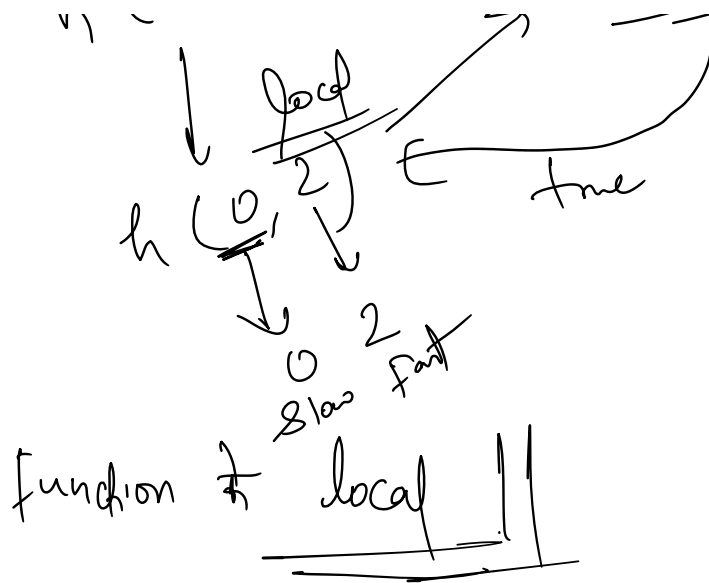 local
h (0, 2)
true
0 2
slow fast
Function h local